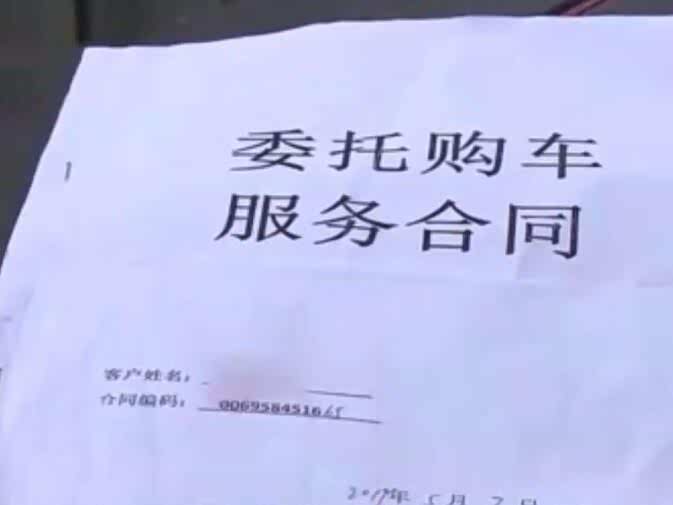 委托购车
服务合同
客户姓名：
合同编码：0069584516
2019年5月7日